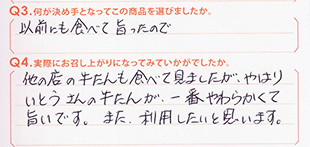 Q3.何が決め手となってこの商品を選びましたか。
以前にも食べて旨ったので
Q4.実際にお召し上がりになってみていかがでしたか。
他の店の牛たんも食べて見ましたが、やはり
いとうさんの牛たんが、一番やわらかくて
旨いです。また、利用したいと思います。